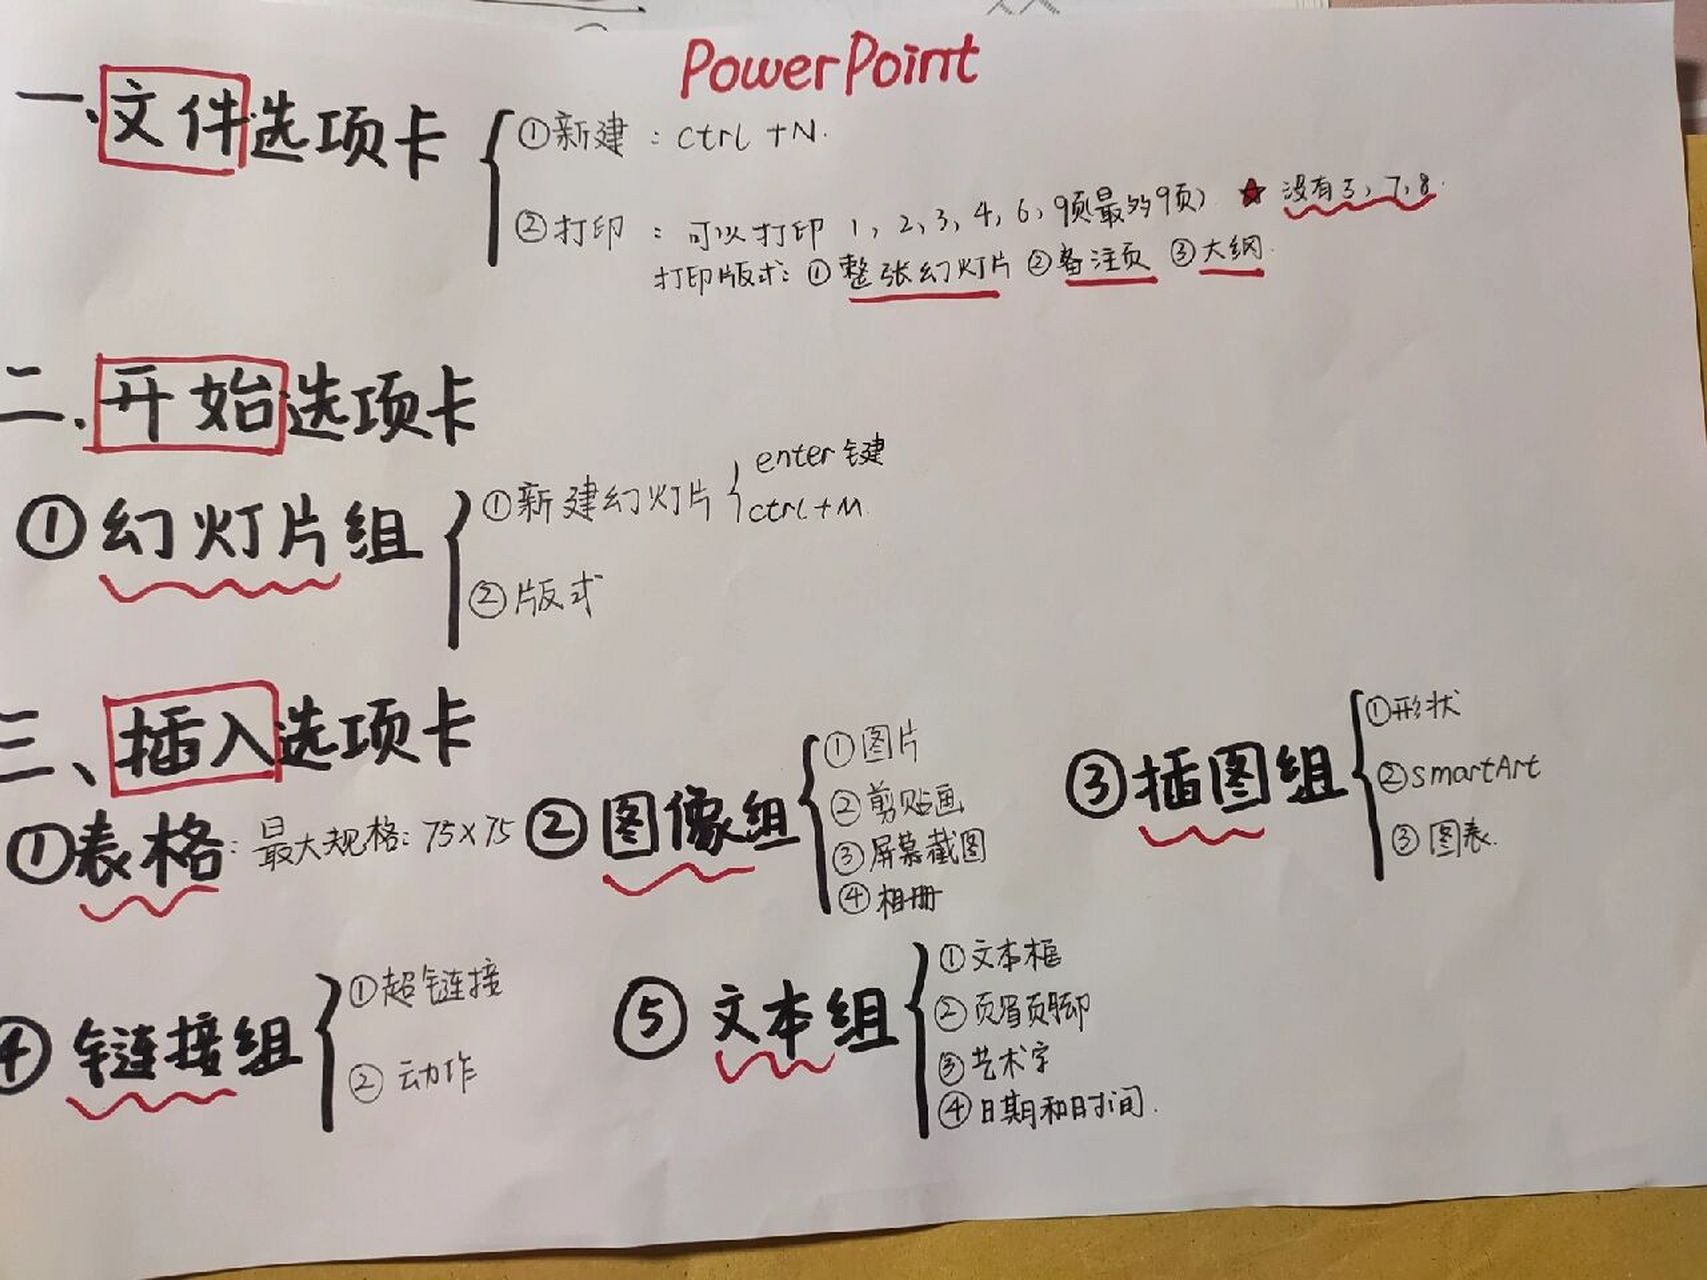 PowerPoint
一、文件选项卡
①新建：ctrl+N.
②打印：可以打印 1，2，3，4，6，9页(最多9页) ★ 没有5，7，8.
打印版式：①整张幻灯片 ②备注页 ③大纲.
二.开始选项卡
①幻灯片组
①新建幻灯片
enter键
ctrl+M.
②版式
三、插入选项卡
①表格：最大规格：75×75
②图像组
①图片
②剪贴画
③屏幕截图
④相册
③插图组
①形状
②smartArt
③图表.
④链接组
①超链接
②动作
⑤文本组
①文本框
②页眉页脚
③艺术字
④日期和时间.